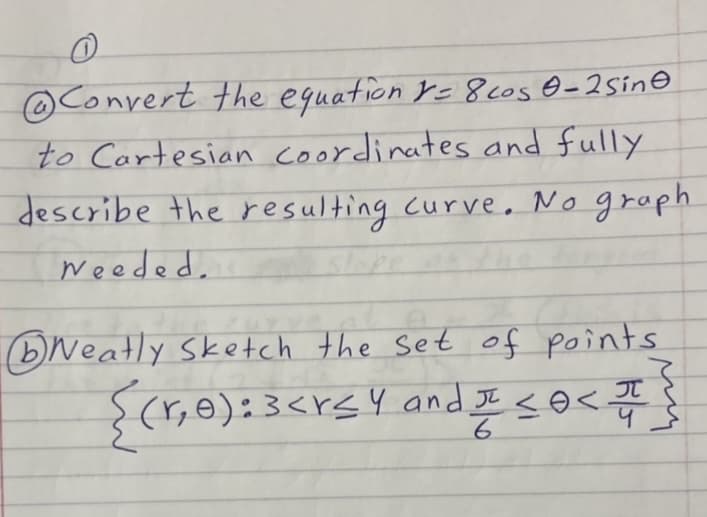 ①
ⓐ Convert the equation r = 8cos θ - 2sinθ
to Cartesian coordinates and fully
describe the resulting curve. No graph
Needed.
ⓑ Neatly sketch the set of points
{(r, θ): 3 < r ≤ 4 and π/6 ≤ θ < π/4}